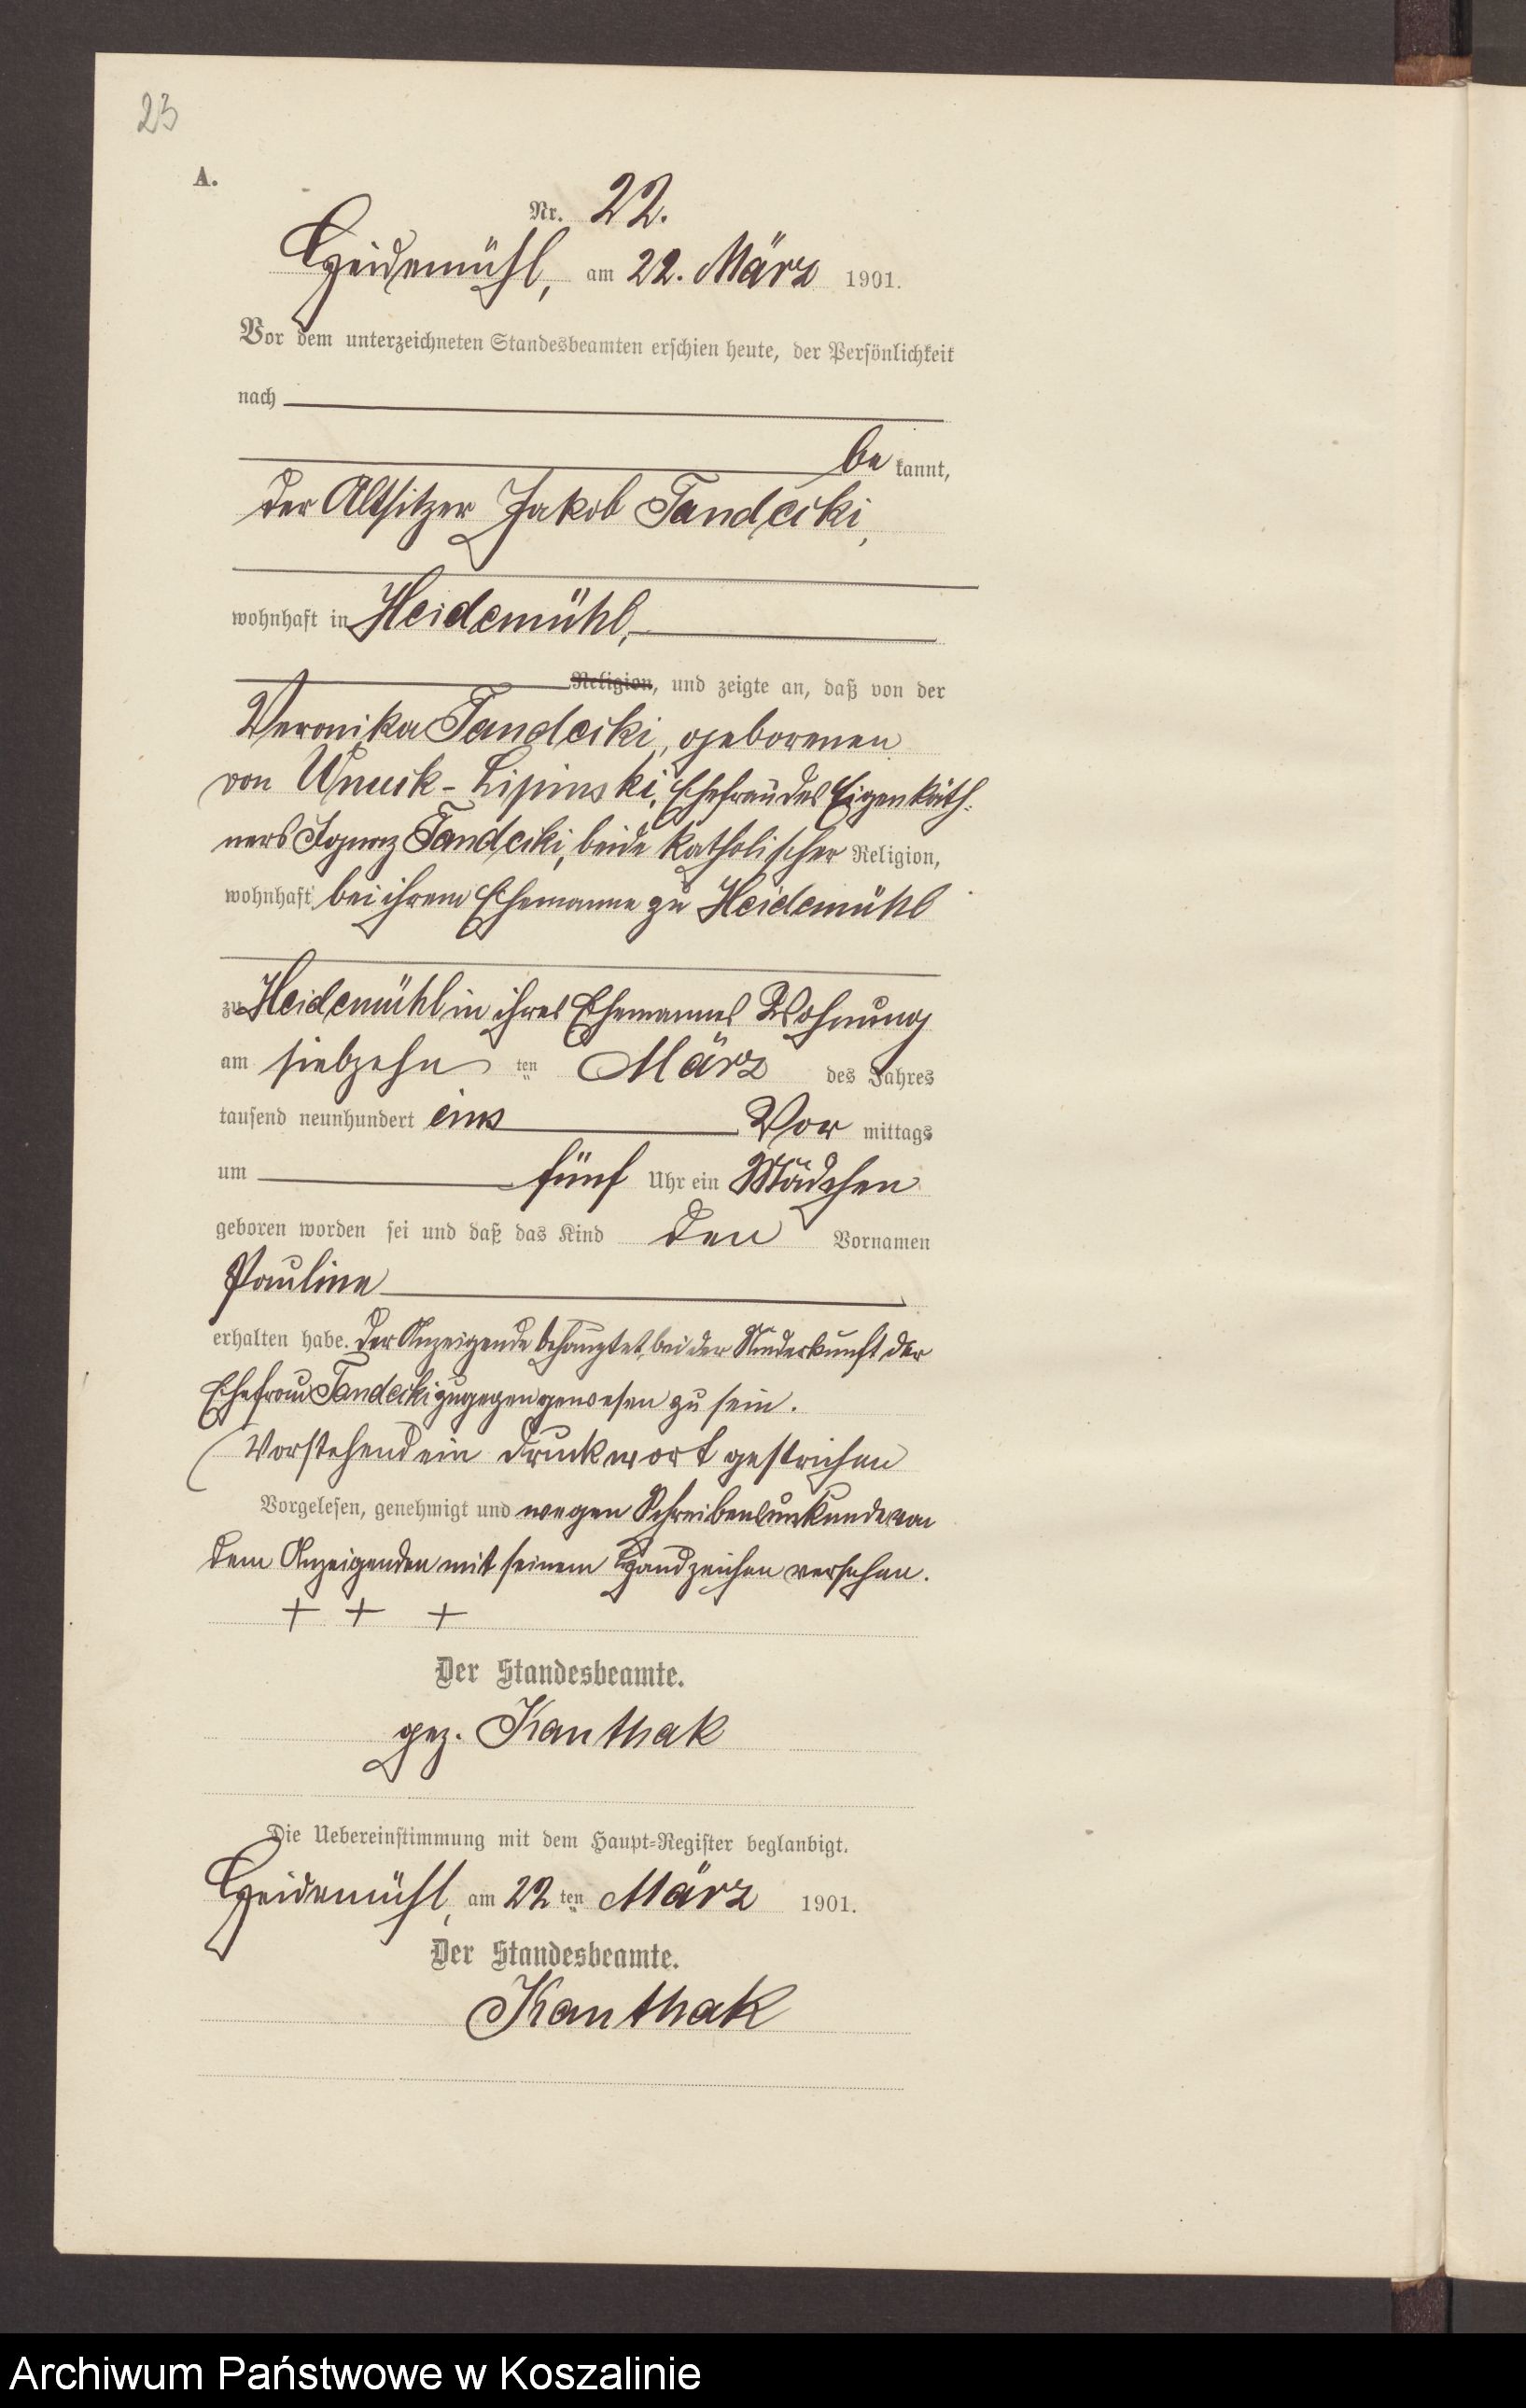 23
A.
Nr. 22.
Heidemühl, am 22. März 1901.
Vor dem unterzeichneten Standesbeamten erschien heute, der Persönlichkeit
nach
be kannt,
der Altsitzer Jakob Tandecki,
wohnhaft in Heidemühl,
Religion, und zeigte an, daß von der
Veronika Tandecki, geborenen
von Wnuck-Lipinski, Ehefrau des Eigenkäth-
ners Ignaz Tandecki, beide katholischer Religion,
wohnhaft bei ihrem Ehemanne zu Heidemühl
zu Heidemühl in ihres Ehemannes Wohnung
am siebzehn ten März des Jahres
tausend neunhundert eins Vor mittags
um fünf Uhr ein Mädchen
geboren worden sei und daß das Kind den Vornamen
Pauline
erhalten habe. Der Anzeigende behauptet, bei der Niederkunft der
Ehefrau Tandecki zugegen gewesen zu sein.
(Vorstehend ein Druckwort gestrichen
Vorgelesen, genehmigt und wegen Schreibensunkunde von
dem Anzeigenden mit seinem Handzeichen versehen.
+ + +
Der Standesbeamte.
gez. Kanthak
Die Uebereinstimmung mit dem Haupt-Register beglaubigt.
Heidemühl, am 22 ten März 1901.
Der Standesbeamte.
Kanthak
Archiwum Państwowe w Koszalinie